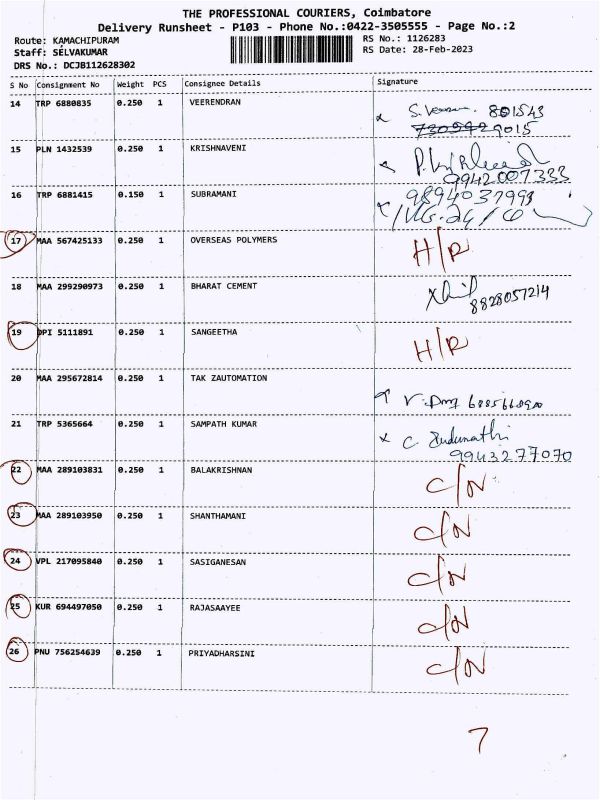 THE PROFESSIONAL COURIERS, Coimbatore
Delivery Runsheet - P103 - Phone No.:0422-3505555 - Page No.:2
Route: KAMACHIPURAM RS No.: 1126283
Staff: SELVAKUMAR RS Date: 28-Feb-2023
DRS No.: DCJB112628302
S No Consignment No Weight PCS Consignee Details Signature
14 TRP 6880835 0.250 1 VEERENDRAN 801543
9015
15 PLN 1432539 0.250 1 KRISHNAVENI
9942007333
16 TRP 6881415 0.150 1 SUBRAMANI 9894037993
17 MAA 567425133 0.250 1 OVERSEAS POLYMERS H/R
18 MAA 299290973 0.250 1 BHARAT CEMENT
8828057214
19 DPI 5111891 0.250 1 SANGEETHA H/R
20 MAA 295672814 0.250 1 TAK ZAUTOMATION
21 TRP 5365664 0.250 1 SAMPATH KUMAR C.
9943277070
22 MAA 289103831 0.250 1 BALAKRISHNAN C/N
23 MAA 289103950 0.250 1 SHANTHAMANI C/N
24 VPL 217095840 0.250 1 SASIGANESAN C/N
25 KUR 694497050 0.250 1 RAJASAAYEE C/N
26 PNU 756254639 0.250 1 PRIYADHARSINI C/N
7